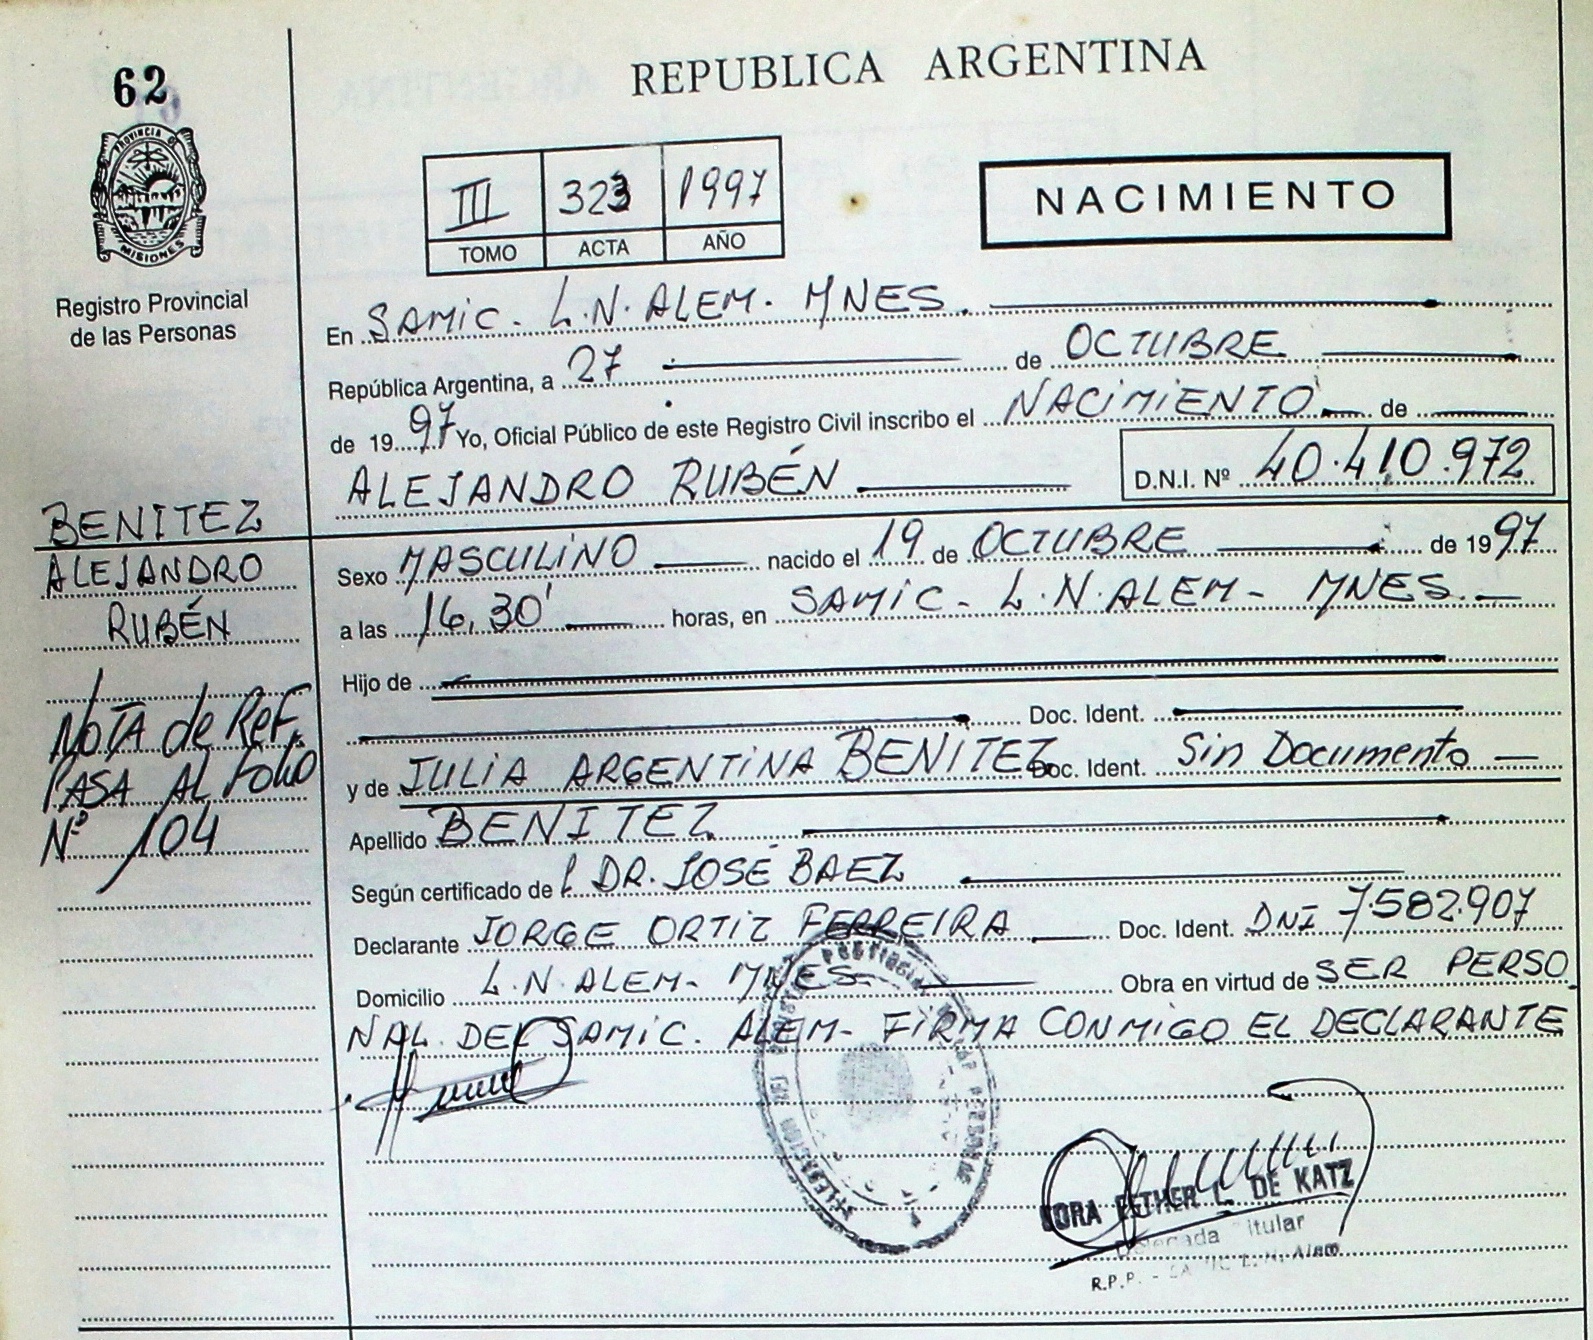 62
REPUBLICA ARGENTINA
PROVINCIA DE
MISIONES
Registro Provincial
de las Personas
III 323 1997
TOMO ACTA AÑO
NACIMIENTO
En SAMIC - L.N. ALEM - MNES.
República Argentina, a 27 de OCTUBRE
de 1997 Yo, Oficial Público de este Registro Civil inscribo el NACIMIENTO de
ALEJANDRO RUBÉN D.N.I. Nº 40.410.972
BENITEZ
ALEJANDRO
RUBÉN
Sexo MASCULINO nacido el 19 de OCTUBRE de 1997
a las 16,30' horas, en SAMIC - L.N. ALEM - MNES.
Hijo de
Doc. Ident.
y de JULIA ARGENTINA BENITEZ Doc. Ident. Sin Documento
Apellido BENITEZ
NOTA de Ref.
PASA AL Folio
Nº 104
Según certificado de DR. JOSÉ BAEZ
Declarante JORGE ORTIZ FERREIRA Doc. Ident. DNI 7.582.907
Domicilio L.N. ALEM - MNES - Obra en virtud de SER PERSO
NAL DEL SAMIC. ALEM - FIRMA CONMIGO EL DECLARANTE
ESTHER L. DE KATZ
Delegada Titular
R.P.P. - L.N. Alem